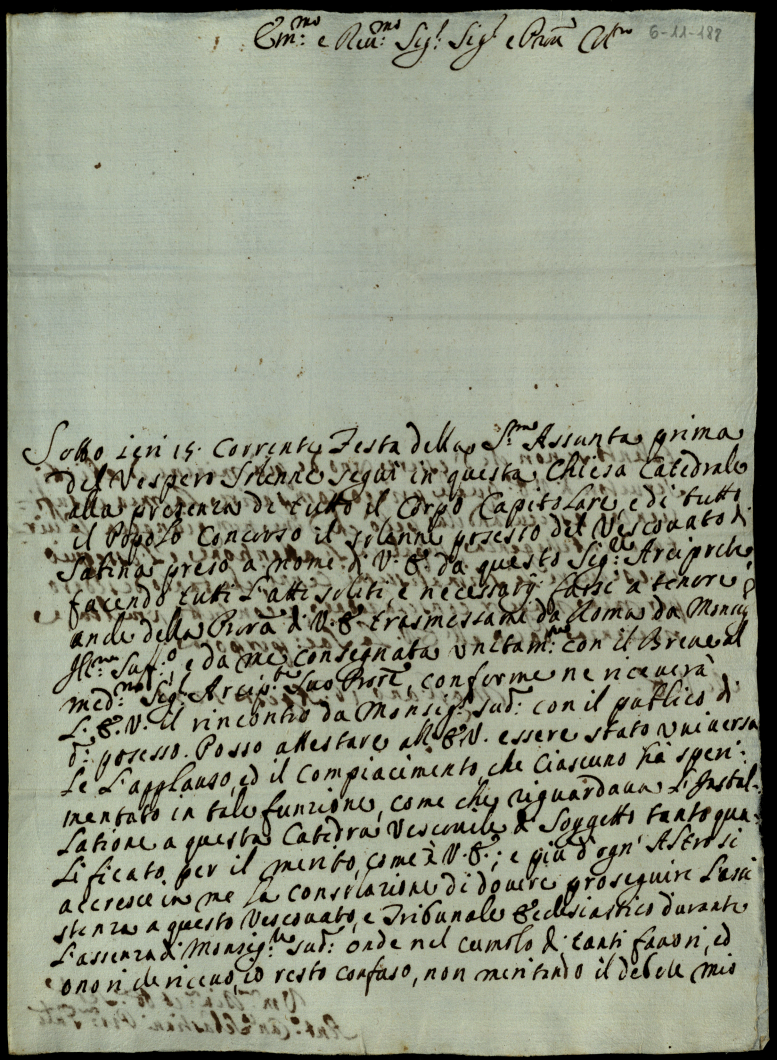 Em:mo e Reu:mo Sig:r Sig:r e Pron Col:mo
6-11-187
Sotto ieri 15. Corrente Festa della S:ma Assunta prima
del Vespero Solenne seguì in questa Chiesa Catedrale
alla presenza di tutto il Corpo Capitolare, e di tutto
il Popolo Concorso il solenne posesso del Vescouato di
Sabina preso a nome di V. E. da questo Sig:re Arciprete
facendo tutti l'atti soliti, e necessarij farsi a tenore
anche della Procra di V. E. trasmessami da Roma da Monsig
Ill:mo Suf:o, e da me consegnata unitam:te con il Breue al
med:mo Sig:r Arcip:te Suo Proñe, conforme ne riceuerà
L. E. V. il rincontro da Monsig:r sud:o con il publico di
d:o posesso. Posso attestare all'E. V. essere stato uniuersa
le L'applauso, ed il Compiacimento, che ciascuno hà speri-
mentato in tale funzione, come che riguardaua L'Instal-
Latione a questa Catedra Vescouile di Soggetto tanto qua-
Lificato per il merito, come è V. E.; e più d'ogn' Altro si
accresce in me la consolazione di douere proseguire L'assi
stenza a questo Vescouato, e Tribunale Ecclesiastico durante
L'assenza di Monsig:re sud:o onde nel cumolo di tanti fauori, ed
onori che riceuo, io resto confuso, non meritando il debole mio